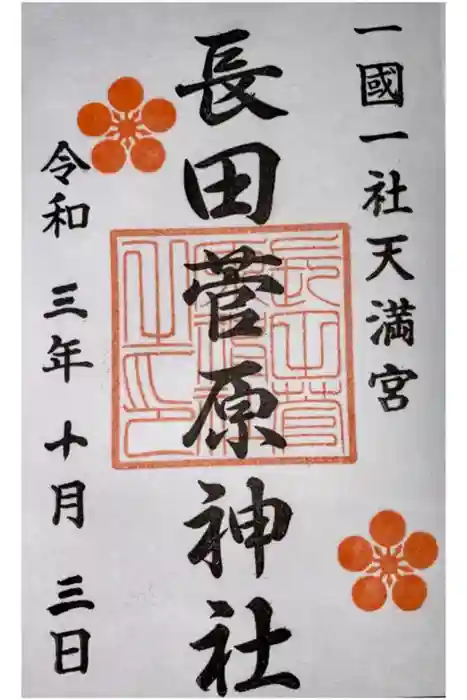 一國一社天満宮
長田菅原神社
令和三年十月三日